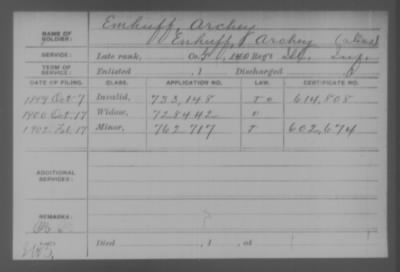 NAME OF SOLDIER: Emhuff, Archey
Enhuff, Archey (alias)
SERVICE: Late rank, Co. 140 Regt Inf.
TERM OF SERVICE: Enlisted , 1 Discharged
DATE OF FILING. CLASS. APPLICATION NO. LAW. CERTIFICATE NO.
Oct. 7 Invalid, 733,148 614,808
1900 Oct. 17 Widow, 728442
1902 Feb. 17 Minor, 762,717 602,674
ADDITIONAL SERVICES:
REMARKS:
Died , 1 , at